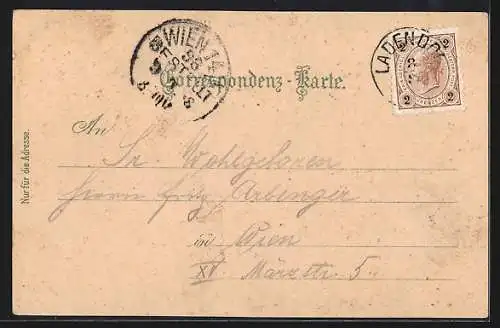 WIEN 14
BESTELLT
LADENDO
2 2
Correspondenz-Karte.
Nur für die Adresse.
An
Sr. Wohlgeboren
Herrn Fritz Arbinger
in Wien
XV Märzstr. 5.